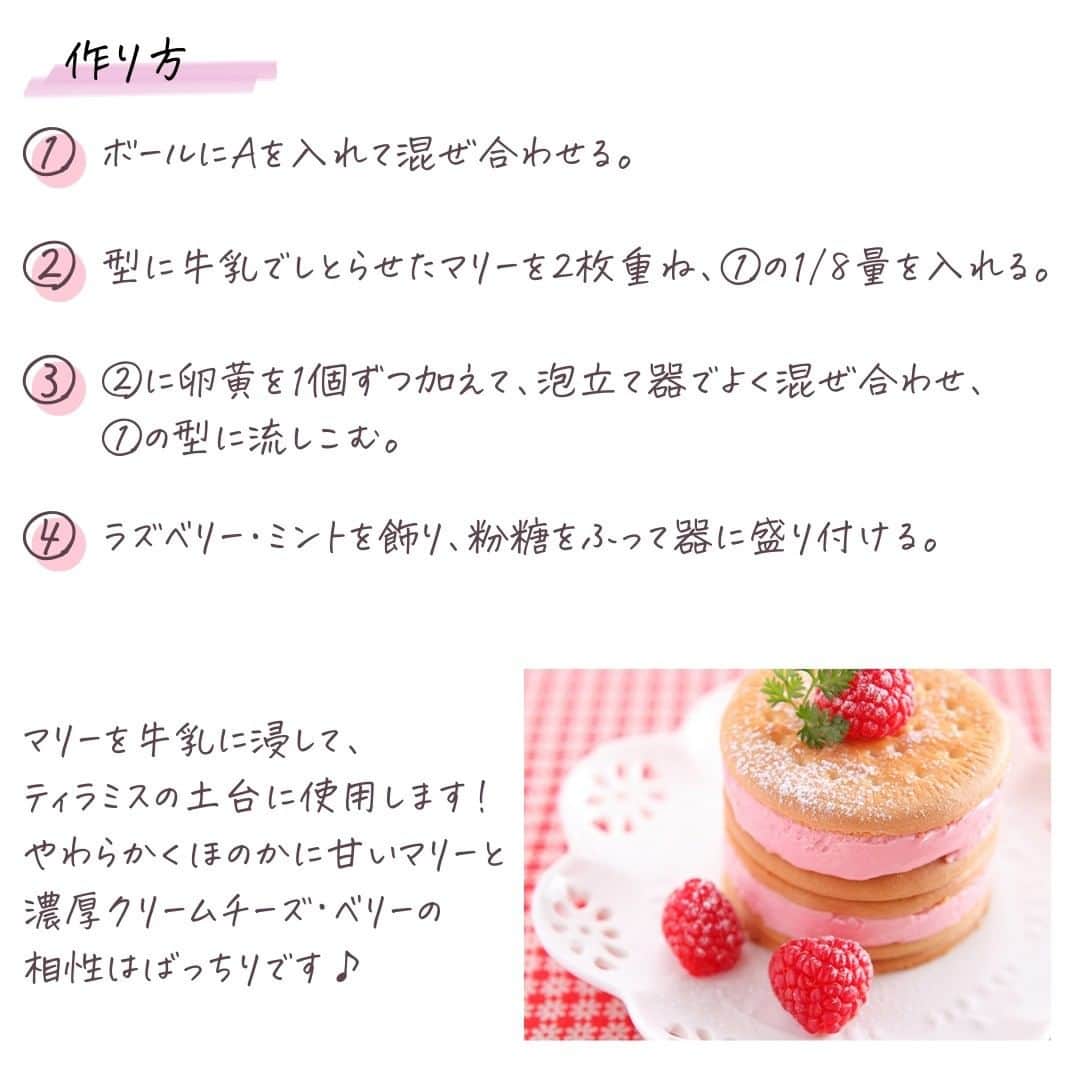 作り方
① ボールにAを入れて混ぜ合わせる。
② 型に牛乳でしとらせたマリーを2枚重ね、①の1/8量を入れる。
③ ②に卵黄を1個ずつ加えて、泡立て器でよく混ぜ合わせ、
①の型に流しこむ。
④ ラズベリー・ミントを飾り、粉糖をふって器に盛り付ける。
マリーを牛乳に浸して、
ティラミスの土台に使用します!
やわらかくほのかに甘いマリーと
濃厚クリームチーズ・ベリーの
相性はばっちりです♪